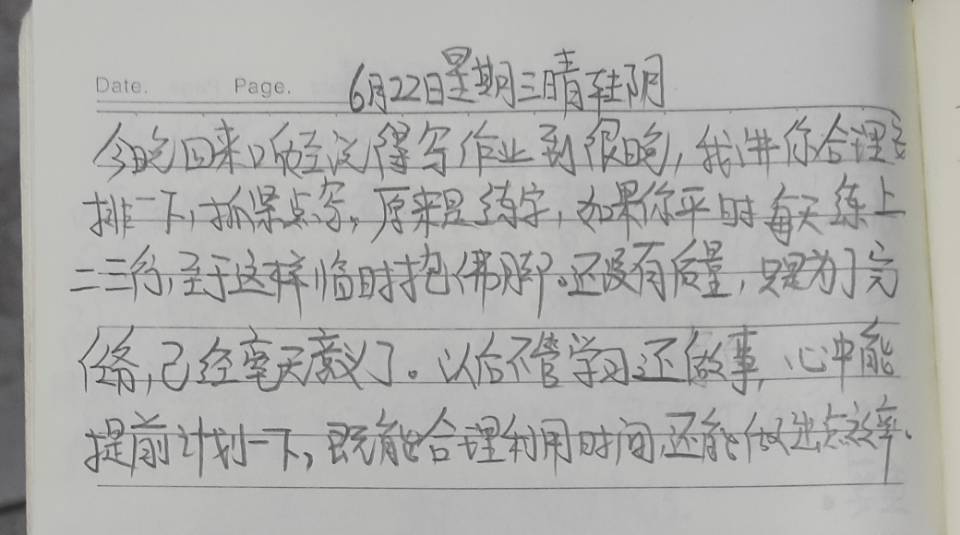 Date. Page. 6月22日星期三晴转阴
今晚回来听说得写作业到很晚,我讲你合理安
排一下,抓紧点写。原来是练字,如果你平时每天练上
二三行,至于这样临时抱佛脚。还没有质量,只是为了完
任务,已经毫无意义了。以后不管学习还做事,心中能
提前计划一下,既能合理利用时间,还能做出点效率.